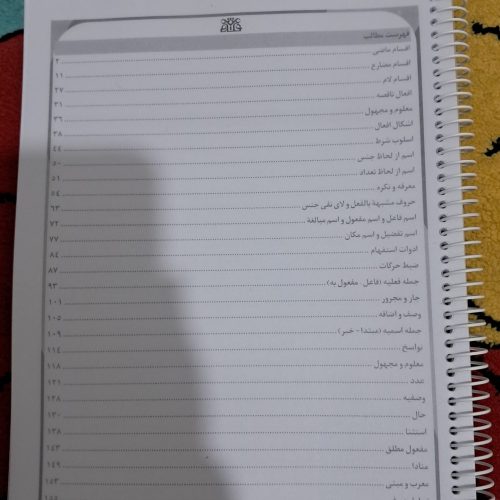 فهرست مطالب
اقسام ماضی ... ۲
اقسام مضارع ... ۱۱
اقسام لام ... ۲۷
افعال ناقصه ... ۳۱
معلوم و مجهول ... ۳۶
اشکال افعال ... ۳۸
اسلوب شرط ... ۴۴
اسم از لحاظ جنس ... ۵۰
اسم از لحاظ تعداد ... ۵۱
معرفه و نکره ... ۵۴
حروف مشبهة بالفعل و لای نفی جنس ... ۶۳
اسم فاعل و اسم مفعول و اسم مبالغة ... ۷۲
اسم تفضیل و اسم مکان ... ۷۷
ادوات استفهام ... ۸۴
ضبط حرکات ... ۸۷
جمله فعلیه (فاعل - مفعول به) ... ۹۳
جار و مجرور ... ۱۰۱
وصف و اضافه ... ۱۰۵
جمله اسمیه (مبتدا - خبر) ... ۱۰۹
نواسخ ... ۱۱۴
معلوم و مجهول ... ۱۱۸
عدد ... ۱۲۱
وصفیه ... ۱۲۸
حال ... ۱۳۰
استثنا ... ۱۳۸
مفعول مطلق ... ۱۴۳
منادا ... ۱۴۹
معرب و مبنی ... ۱۵۳